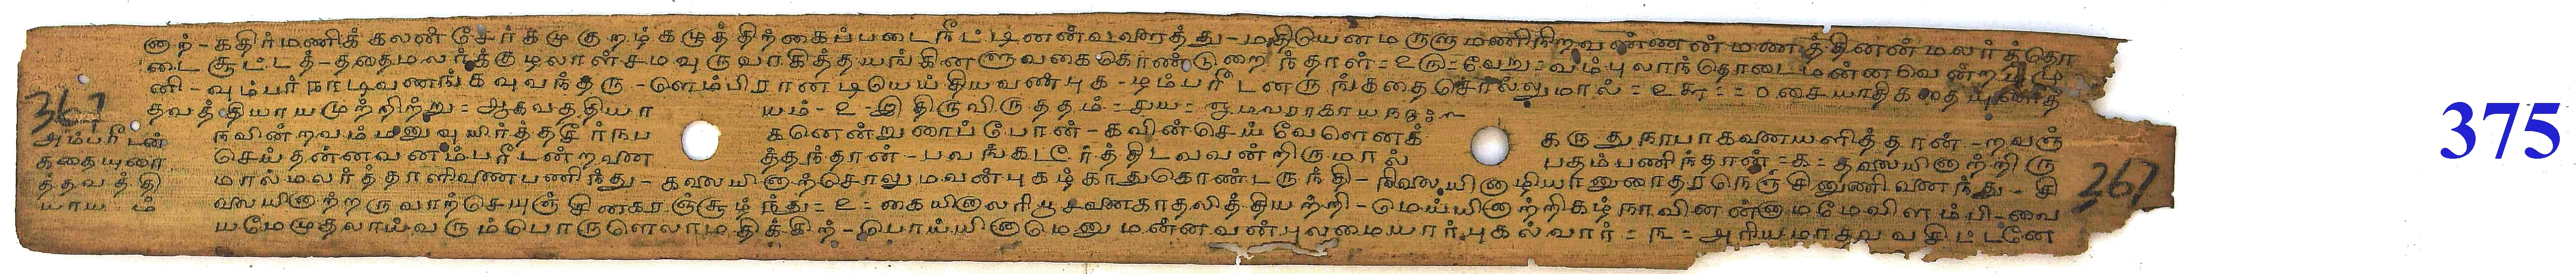 ணற்-கதிர்மணிக் கலன் சேர் கமுகுறழ்கழுத்திற்கைப்படைநீட்டினன்வரைத்து-மதியெனமருளுமணிநிறவண்ணன்மணத்தினன்மலர்த்தொ
டை சூட்டத்-ததைமலர்க்குழலாள்சமவுருவாகித்தயங்கினளுவகைகொண்டுறைந்தாள்=உரு=வேறு=வம்புலாந்தொடைமன்னவென்ற
ணி-வும்பர்நாடிவணங்கவுவந்தரு-ளெம்பிரானடியெய்தியவண்புக-ழம்பரீடனருங்கதைசொல்லுமால்=
தவத்தியாயமுற்றிற்று=ஆகவத்தியா யம்-உ-இதிருவிருத்தம்=
367
அம்பரீடன்
கதையுரை
த்தவத்தி
யாயம்
நவின்றவம்மனுவுயிர்த்தசீர்நப கனென்றுரைப்போன்-கவின்செய் வேளெனக் கருதுநாபாகனையளித்தான்-றவஞ்
செய்தன்னவனம்பரீடன்றனை த்தந்தான்-பவங்கடீர்த்திடவவன்றிருமால் பதம்பணிந்தான்=க=தலையினாற்றிரு
மால்மலர்த்தாளிணைபணிந்து-கலையினாற்சொலுமவன்புகழ்காதுகொண்டருந்தி-நிலையினடியானுரைதரநெஞ்சினுணினைந்து-சி
லையினாற்றருவாற்செயுஞ்சினகரஞ்சூழ்ந்து=உ=கையினாலரிபூசனைகாதலித்தியற்றி-மெய்யினாற்றிகழ்நாவினன்னாமமேவிளம்பி-வை
யமேமுதலாய்வரும்பொருளெலாமதிக்கிற்-பொய்யினாமெனுமன்னவன்புலமையார்புகல்வார்=௩=அரியமாதவவசிட்டனே
267
375